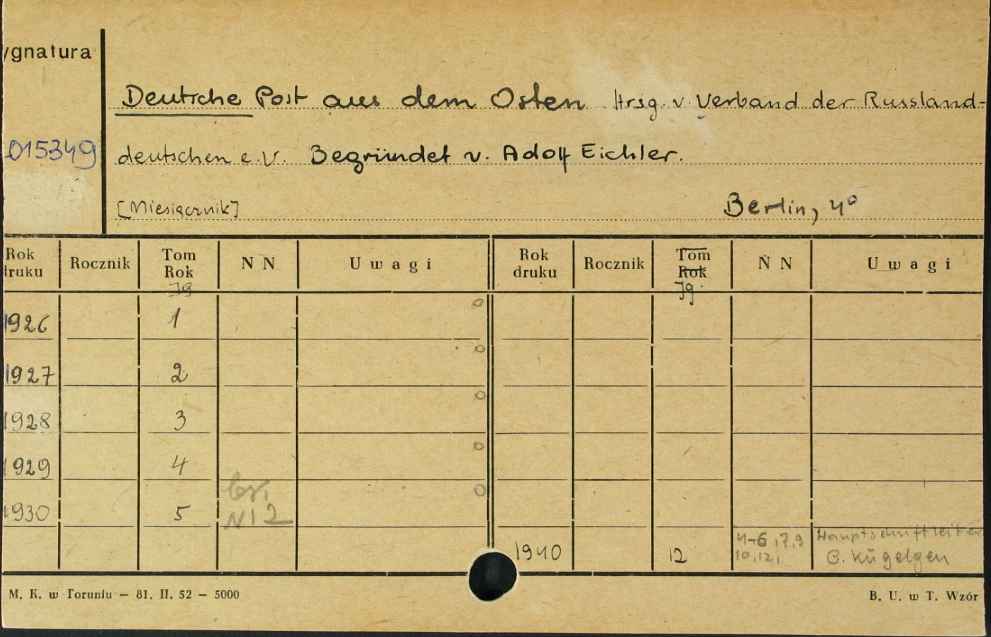 ygnatura
Deutsche Post aus dem Osten Hrsg. v. Verband der Russland-
015349 deutschen e.V. Begründet v. Adolf Eichler.
[Miesięcznik] Berlin, 4°
Rok druku Rocznik Tom Rok Jg N N Uwagi Rok druku Rocznik Tom Rok Jg. N N Uwagi
1926 1 o
1927 2 o
1928 3 o
1929 4 o
1930 5 N 2 o
1940 12 4-6, 7, 9 10, 12, Hauptschriftleiter C. Kügelgen
M. K. w Toruniu — 81. II. 52 — 5000 B. U. w T. Wzór